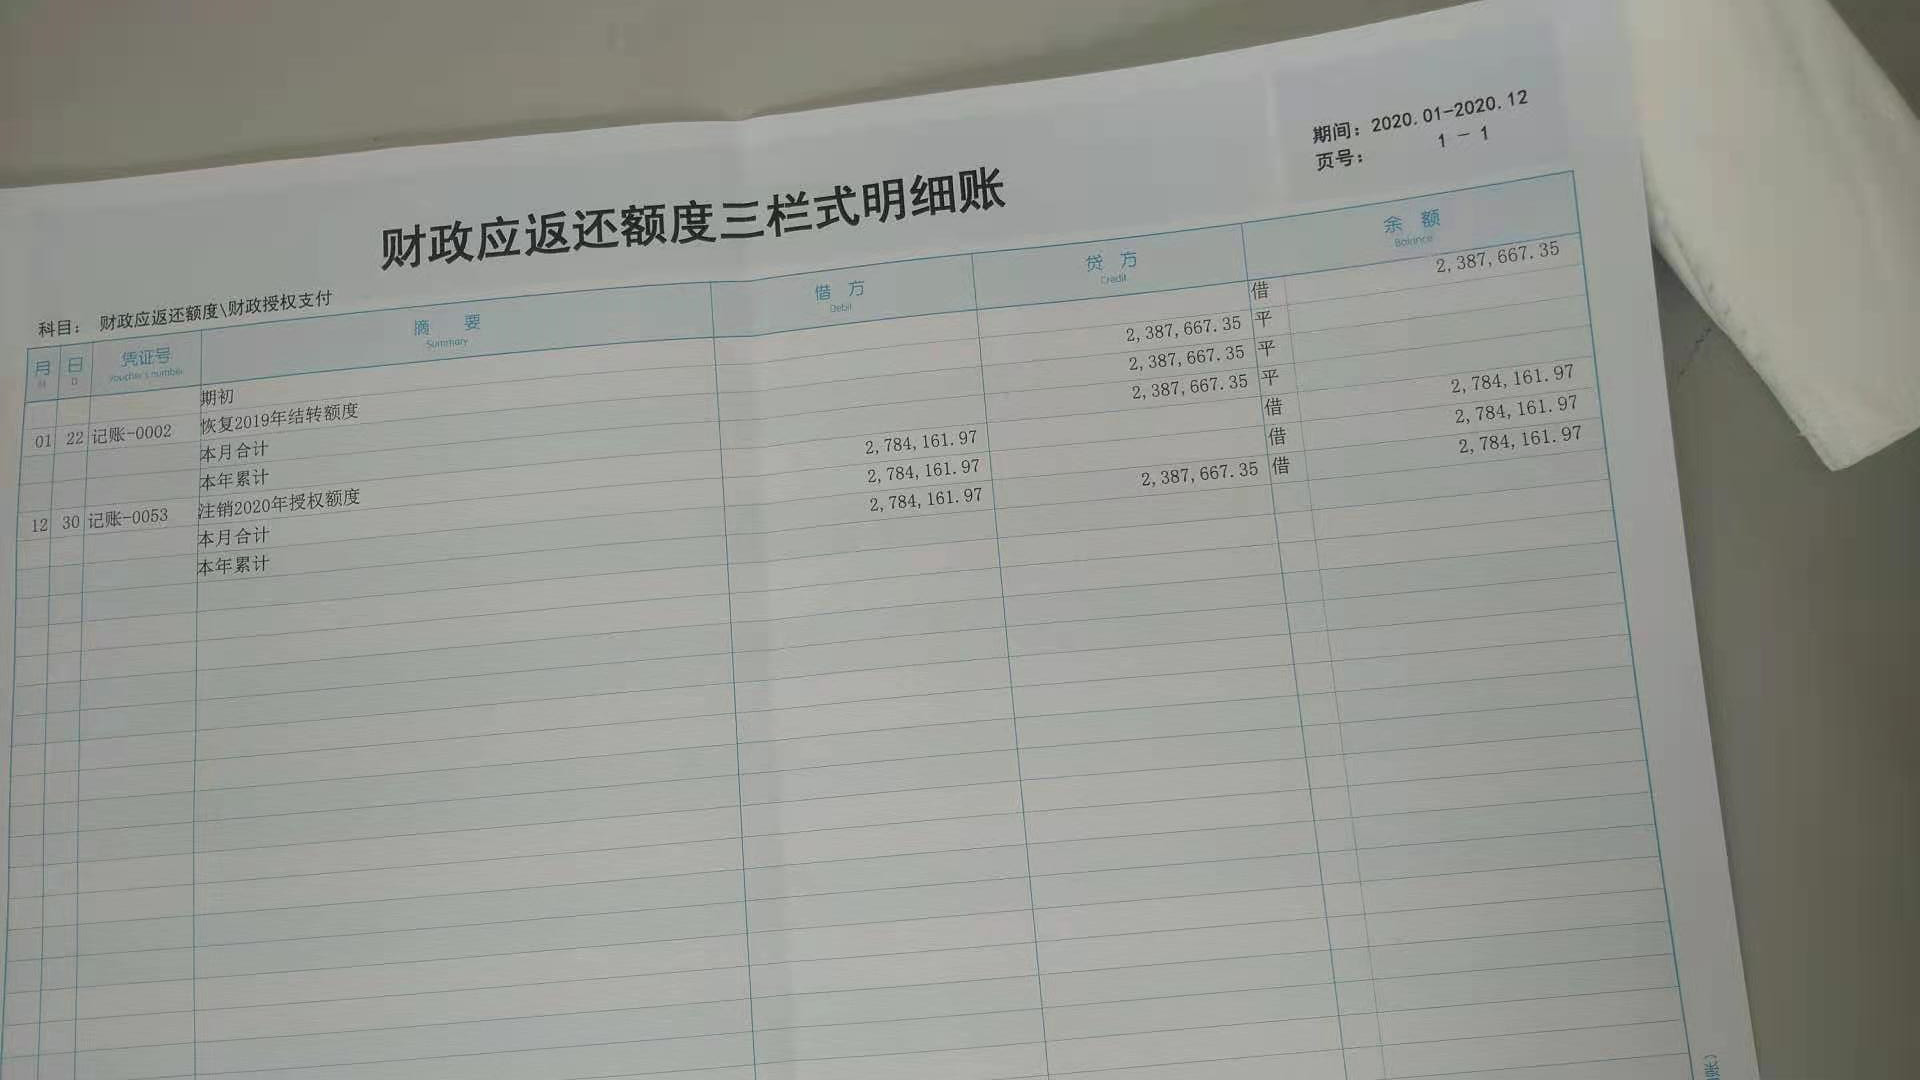 期间：2020.01-2020.12
页号： 1 - 1
财政应返还额度三栏式明细账
科目： 财政应返还额度\财政授权支付
月 日 凭证号 摘 要 借 方 贷 方 余 额
M D Voucher's number Summary Debit Credit Balance
期初 借 2,387,667.35
01 22 记账-0002 恢复2019年结转额度 2,387,667.35 平
本月合计 2,387,667.35 平
本年累计 2,387,667.35 平
12 30 记账-0053 注销2020年授权额度 2,784,161.97 借 2,784,161.97
本月合计 2,784,161.97 借 2,784,161.97
本年累计 2,784,161.97 2,387,667.35 借 2,784,161.97